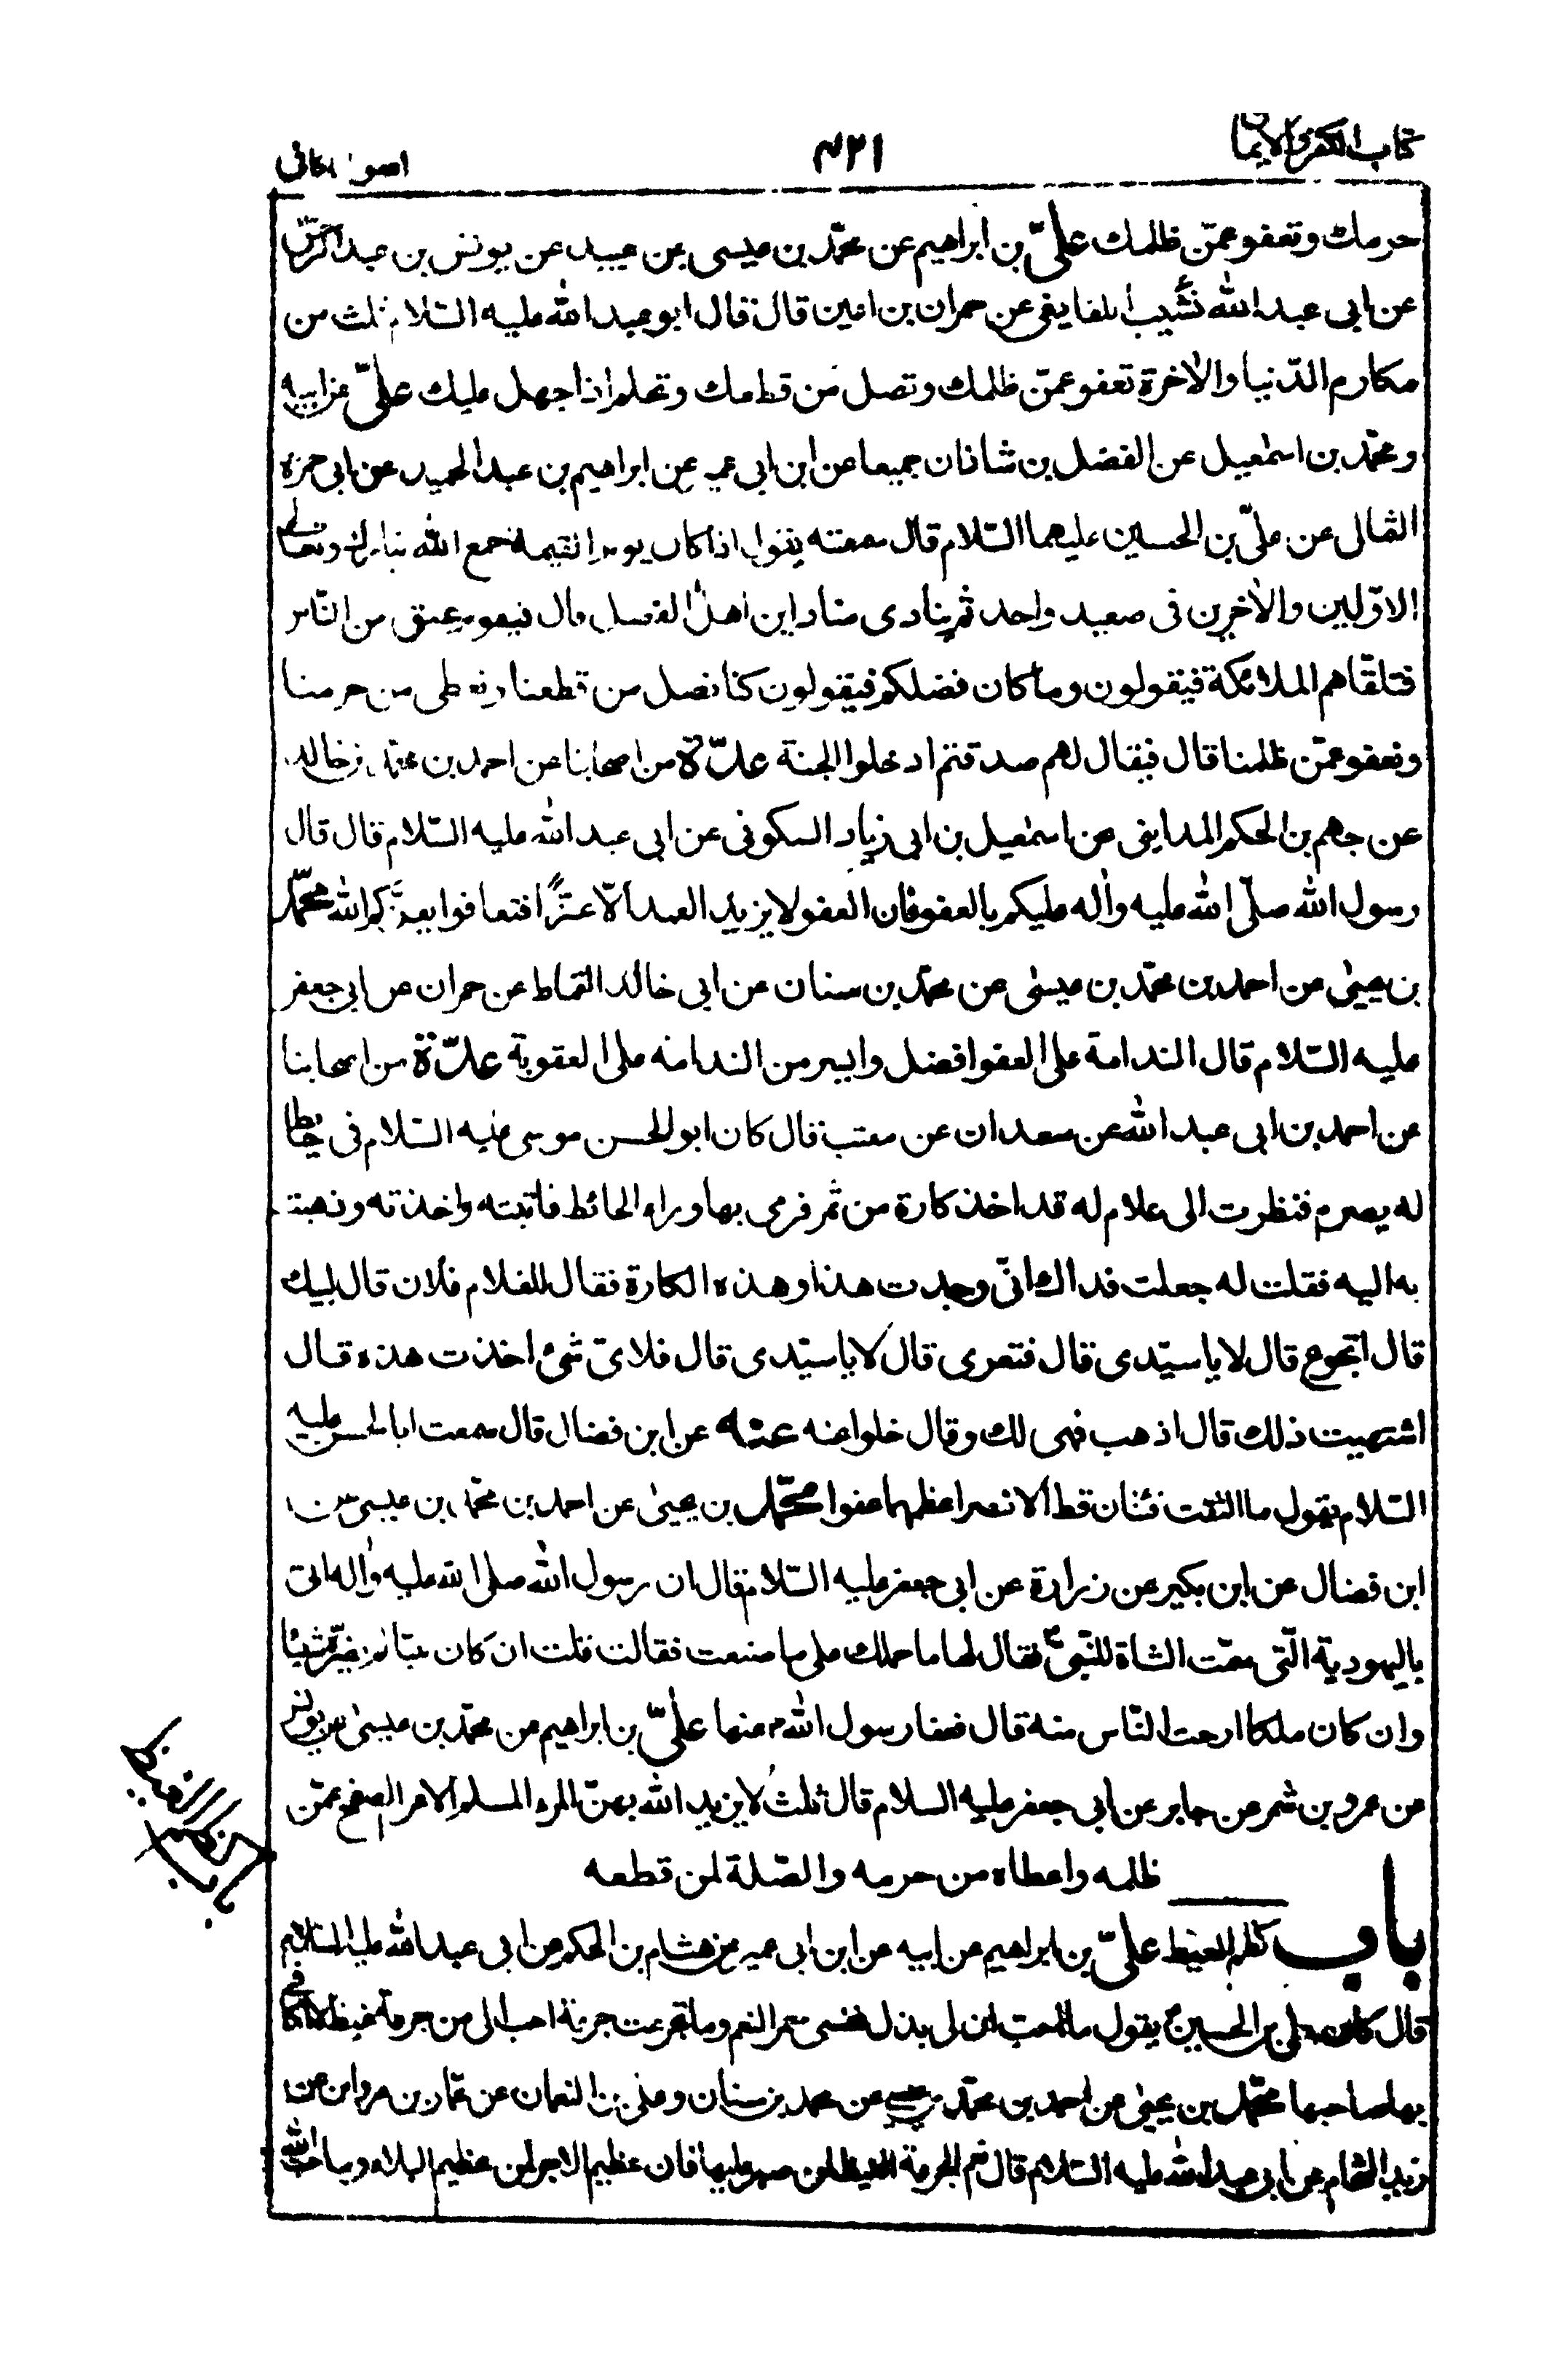 كتاب الكفر والايمان
٤٢١
اصول الكافى
حرمك وتعفو عمّن ظلمك علىّ بن ابراهيم عن محمّد بن عيسى بن عبيد عن يونس بن عبد الرحمن
عن ابى عبد الله نشيب اللفايفى عن حمران بن اعين قال قال ابو عبد الله عليه السّلام ثلث من
مكارم الدّنيا والاخرة تعفو عمّن ظلمك وتصل من قطعك وتحلم اذا جهل عليك علىّ عن ابيه
ومحمّد بن اسمٰعيل عن الفضل بن شاذان جميعا عن ابن ابى عمير عن ابراهيم بن عبد الحميد عن ابى حمزة
الثمالى عن علىّ بن الحسين عليهما السّلام قال سمعته يقول اذا كان يوم القيمة جمع الله تبارك وتعالى
الاوّلين والاٰخرين فى صعيد واحد ثم ينادى مناد اين اهل الفضل قال فيقوم عنق من النّاس
فتلقّاهم الملائكة فيقولون وما كان فضلكم فيقولون كنا نصل من قطعنا ونعطى من حرمنا
ونعفو عمّن ظلمنا قال فيقال لهم صدقتم ادخلوا الجنة عدّة من اصحابنا عن احمد بن محمّد بن خالد
عن جهم بن الحكم المداينى عن اسمٰعيل بن ابى زياد السكونى عن ابى عبد الله عليه السّلام قال قال
رسول الله صلّى الله عليه واٰله عليكم بالعفو فان العفو لا يزيد العبد الّا عزًّا فتعافوا يعزّكم الله محمّد
بن يحيىٰ عن احمد بن محمّد بن عيسىٰ عن محمّد بن سنان عن ابى خالد القمّاط عن حمران عن ابى جعفر
عليه السّلام قال الندامة على العفو افضل وايسر من الندامة على العقوبة عدّة من اصحابنا
عن احمد بن ابى عبد الله عن سعدان عن معتب قال كان ابو الحسن موسى عليه السّلام فى حائط
له يصرم فنظرت الى غلام له قد اخذ كارة من تمر فرمى بها وراء الحائط فاتيته واخذته وذهبت
به اليه فقلت له جعلت فداك انّى وجدت هذا وهذه الكارة فقال للغلام فلان قال لبيك
قال اتجوع قال لا يا سيّدى قال فتعرى قال لا يا سيّدى قال فلاىّ شئ اخذت هذه قال
اشتهيت ذلك قال اذهب فهى لك وقال خلوا عنه عنه عن ابن فضال قال سمعت ابا الحسن عليه
السّلام يقول ما التقت فئتان قط الا نصر اعظمهما عفوا محمّد بن يحيىٰ عن احمد بن محمّد بن عيسى عن
ابن فضال عن ابن بكير عن زرارة عن ابى جعفر عليه السّلام قال ان رسول الله صلى الله عليه واٰله اتى
باليهودية الّتى سمّت الشاة للنّبىّ ص فقال لها ما حملك على ما صنعت فقالت قلت ان كان نبيّا لم يضرّه شيئا
وان كان ملكا ارحت النّاس منه قال فعفا رسول الله ص عنها علىّ بن ابراهيم عن محمّد بن عيسىٰ عن يونس
عن عمرو بن شمر عن جابر عن ابى جعفر عليه السلام قال ثلث لا يزيد الله بهنّ المرء المسلم الا عزا الصفح عمّن
ظلمه واعطاء من حرمه والصّلة لمن قطعه
باب كظم الغيظ علىّ بن ابراهيم عن ابيه عن ابن ابى عمير عن هشام بن الحكم عن ابى عبد الله عليه السّلام
قال كان على بن الحسين ع يقول ما احب ان لى بذل نفسى حمر النعم وما تجرعت جرعة احب الى من جرعة غيظ لا اكافى
بها صاحبها محمّد بن يحيىٰ عن احمد بن محمّد بن عيسى عن محمد بن سنان وعلى بن النعمان عن عمّار بن مروان عن
زيد الشحام عن ابى عبد الله عليه السّلام قال نعم الجرعة الغيظ لمن صبر عليها فان عظيم الاجر لمن عظيم البلاء وما احب الله
باب كظم الغيظ